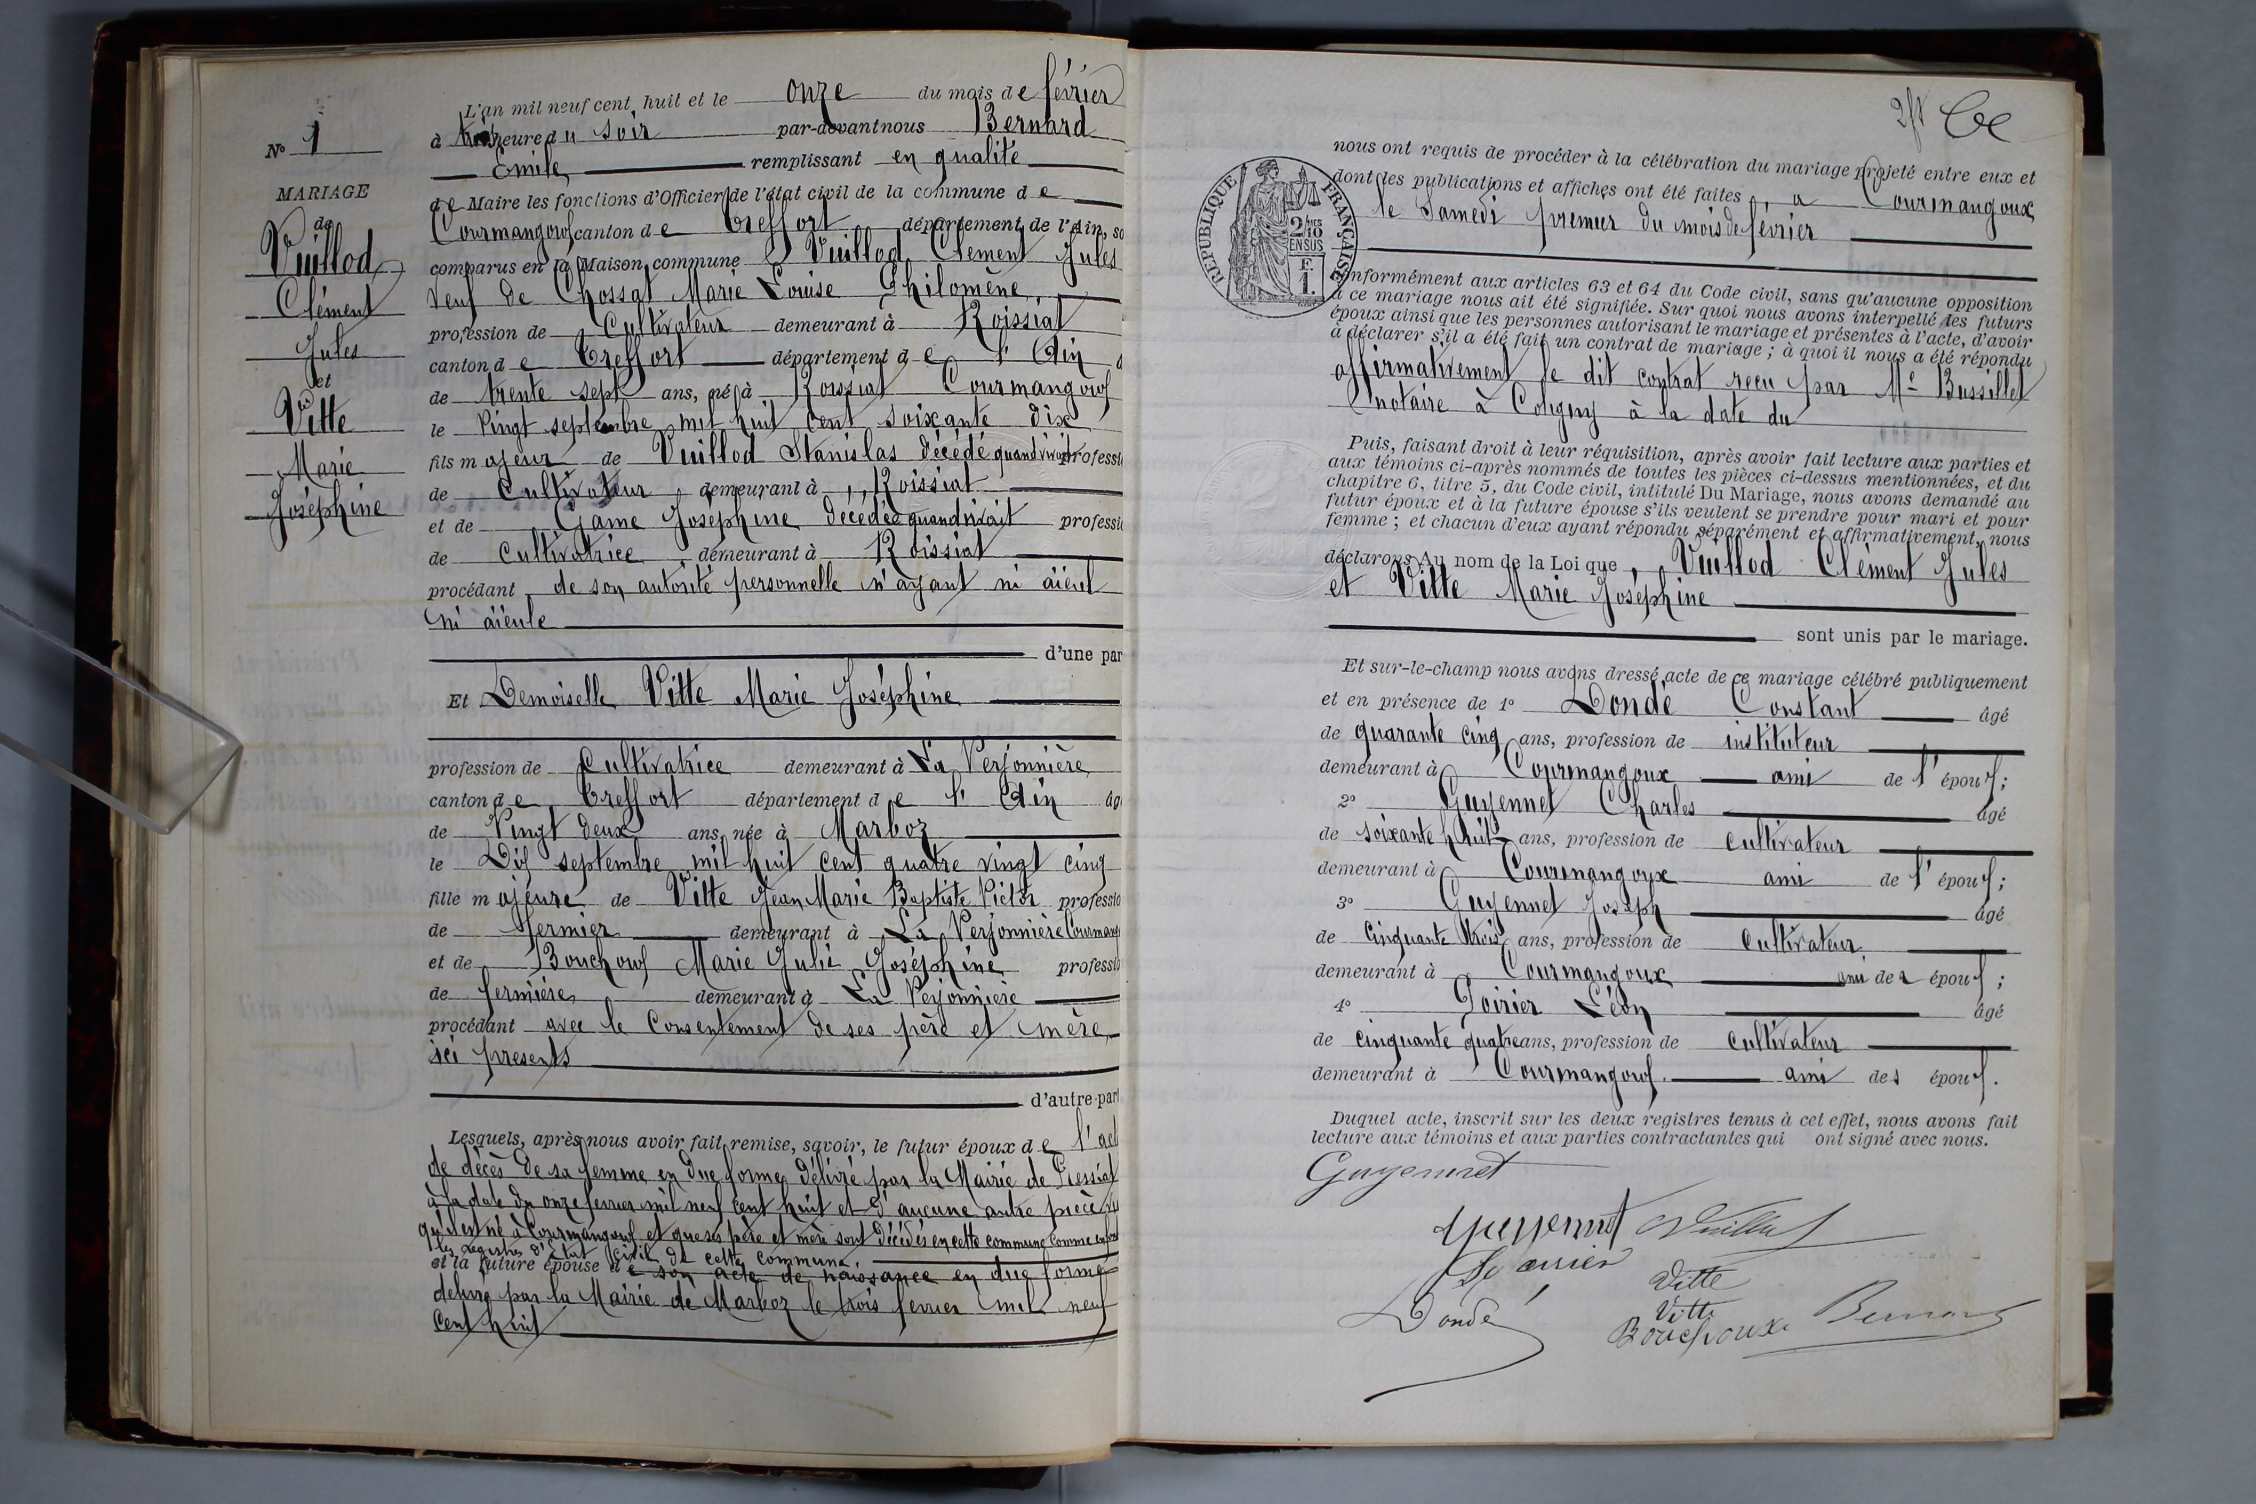 L'an mil neuf cent huit et le onze du mois de février
à heure du soir par-devant nous Bernard
Emile remplissant en qualité
de Maire les fonctions d'Officier de l'état civil de la commune de
Courmangoux canton de Treffort département de l'Ain, so
comparus en la Maison commune Vuillod Clément Jules
veuf de Chossat Marie Louise Philomène
profession de Cultivateur demeurant à Roissiat
canton de Treffort département de l'Ain
de trente sept ans, né à Roissiat Courmangoux
le vingt septembre mil huit cent soixante dix
fils majeur de Vuillod Stanislas décédé quand vivait professi
de Cultivateur demeurant à Roissiat
et de Game Joséphine décédée quand vivait professi
de cultivatrice demeurant à Roissiat
procédant de son autorité personnelle n'ayant ni aïeul
ni aïeule
d'une par
Et Demoiselle Vitte Marie Joséphine
profession de Cultivatrice demeurant à La Verjonnière
canton de Treffort département de l'Ain âg
de Vingt deux ans, née à Marboz
le Dix septembre mil huit cent quatre vingt cinq
fille majeure de Vitte Jean Marie Baptiste Victor professio
de fermier demeurant à La Verjonnière Courmang
et de Bouchoux Marie Julie Joséphine professio
de fermière demeurant à La Verjonnière
procédant avec le Consentement de ses père et mère
ici présents
d'autre part
Lesquels, après nous avoir fait remise, savoir, le futur époux de l'act
de décès de sa femme en due forme délivré par la Mairie de Pressiat
à la date du onze fevrier mil neuf cent huit et d'aucune autre pièce vu
qu'il est né à Courmangoux et que ses père et mère sont décédés en cette commune comme en font
les registres d'état civil de cette commune.
et la future épouse de son acte de naissance en due forme
delivré par la Mairie de Marboz le trois fevrier mil neuf
cent huit
No 1
MARIAGE
de
Vuillod
Clément
Jules
et
Vitte
Marie
Joséphine
REPUBLIQUE FRANÇAISE
2/10
EN SUS
F.
1.
nous ont requis de procéder à la célébration du mariage projeté entre eux et
dont les publications et affiches ont été faites à Courmangoux
le Samedi premier du mois de février
conformément aux articles 63 et 64 du Code civil, sans qu'aucune opposition
à ce mariage nous ait été signifiée. Sur quoi nous avons interpellé les futurs
époux ainsi que les personnes autorisant le mariage et présentes à l'acte, d'avoir
à déclarer s'il a été fait un contrat de mariage ; à quoi il nous a été répondu
affirmativement le dit contrat reçu par Me Bussillet
notaire à Coligny à la date du
Puis, faisant droit à leur réquisition, après avoir fait lecture aux parties et
aux témoins ci-après nommés de toutes les pièces ci-dessus mentionnées, et du
chapitre 6, titre 5, du Code civil, intitulé Du Mariage, nous avons demandé au
futur époux et à la future épouse s'ils veulent se prendre pour mari et pour
femme ; et chacun d'eux ayant répondu séparément et affirmativement, nous
déclarons Au nom de la Loi que Vuillod Clément Jules
et Vitte Marie Joséphine
sont unis par le mariage.
Et sur-le-champ nous avons dressé acte de ce mariage célébré publiquement
et en présence de 1o Dondé Constant âgé
de quarante cinq ans, profession de instituteur
demeurant à Courmangoux ami de l'époux ;
2o Guyennet Charles âgé
de soixante huit ans, profession de cultivateur
demeurant à Courmangoux ami de l'époux ;
3o Guyennet Joseph âgé
de cinquante trois ans, profession de cultivateur
demeurant à Courmangoux ami des époux ;
4o Poirier Léon âgé
de cinquante quatre ans, profession de cultivateur
demeurant à Courmangoux. ami des époux.
Duquel acte, inscrit sur les deux registres tenus à cet effet, nous avons fait
lecture aux témoins et aux parties contractantes qui ont signé avec nous.
Guyennet
Guyennet Vuillod
Vitte
Dondé
Vitte
Bouchoux Bernard